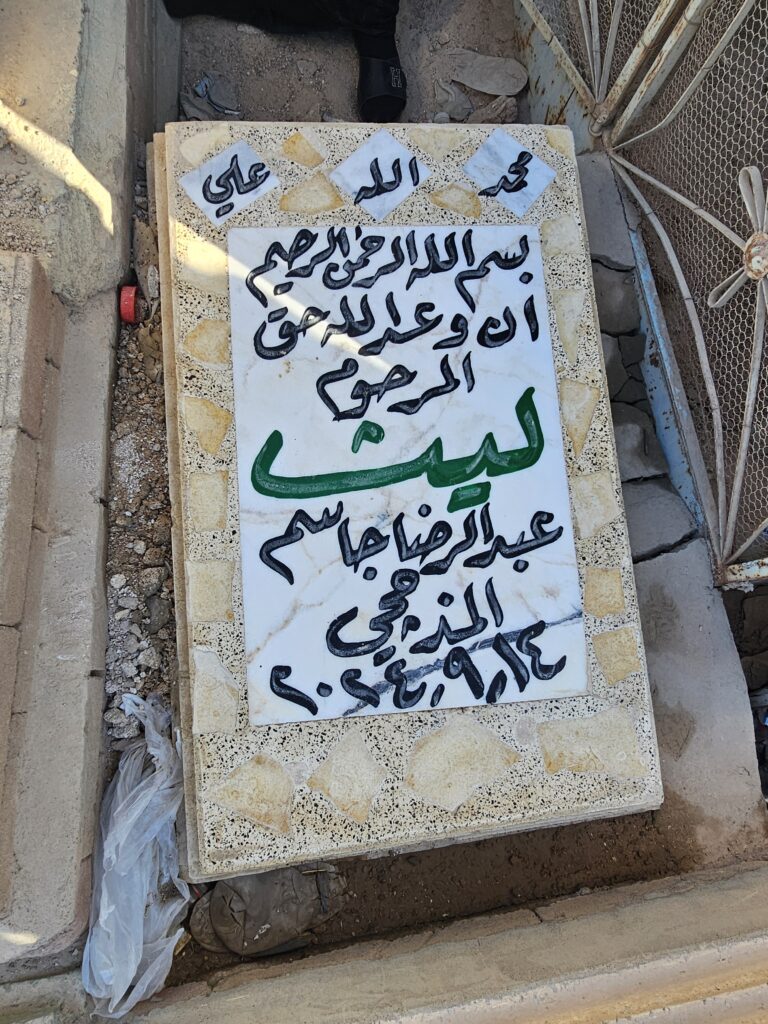 محمد الله علي
بسم الله الرحمن الرحيم
ان وعد الله حق
المرحوم
ليث
عبد الرضا جاسم
المذحجي
٢٠٢٤،٩،١٤